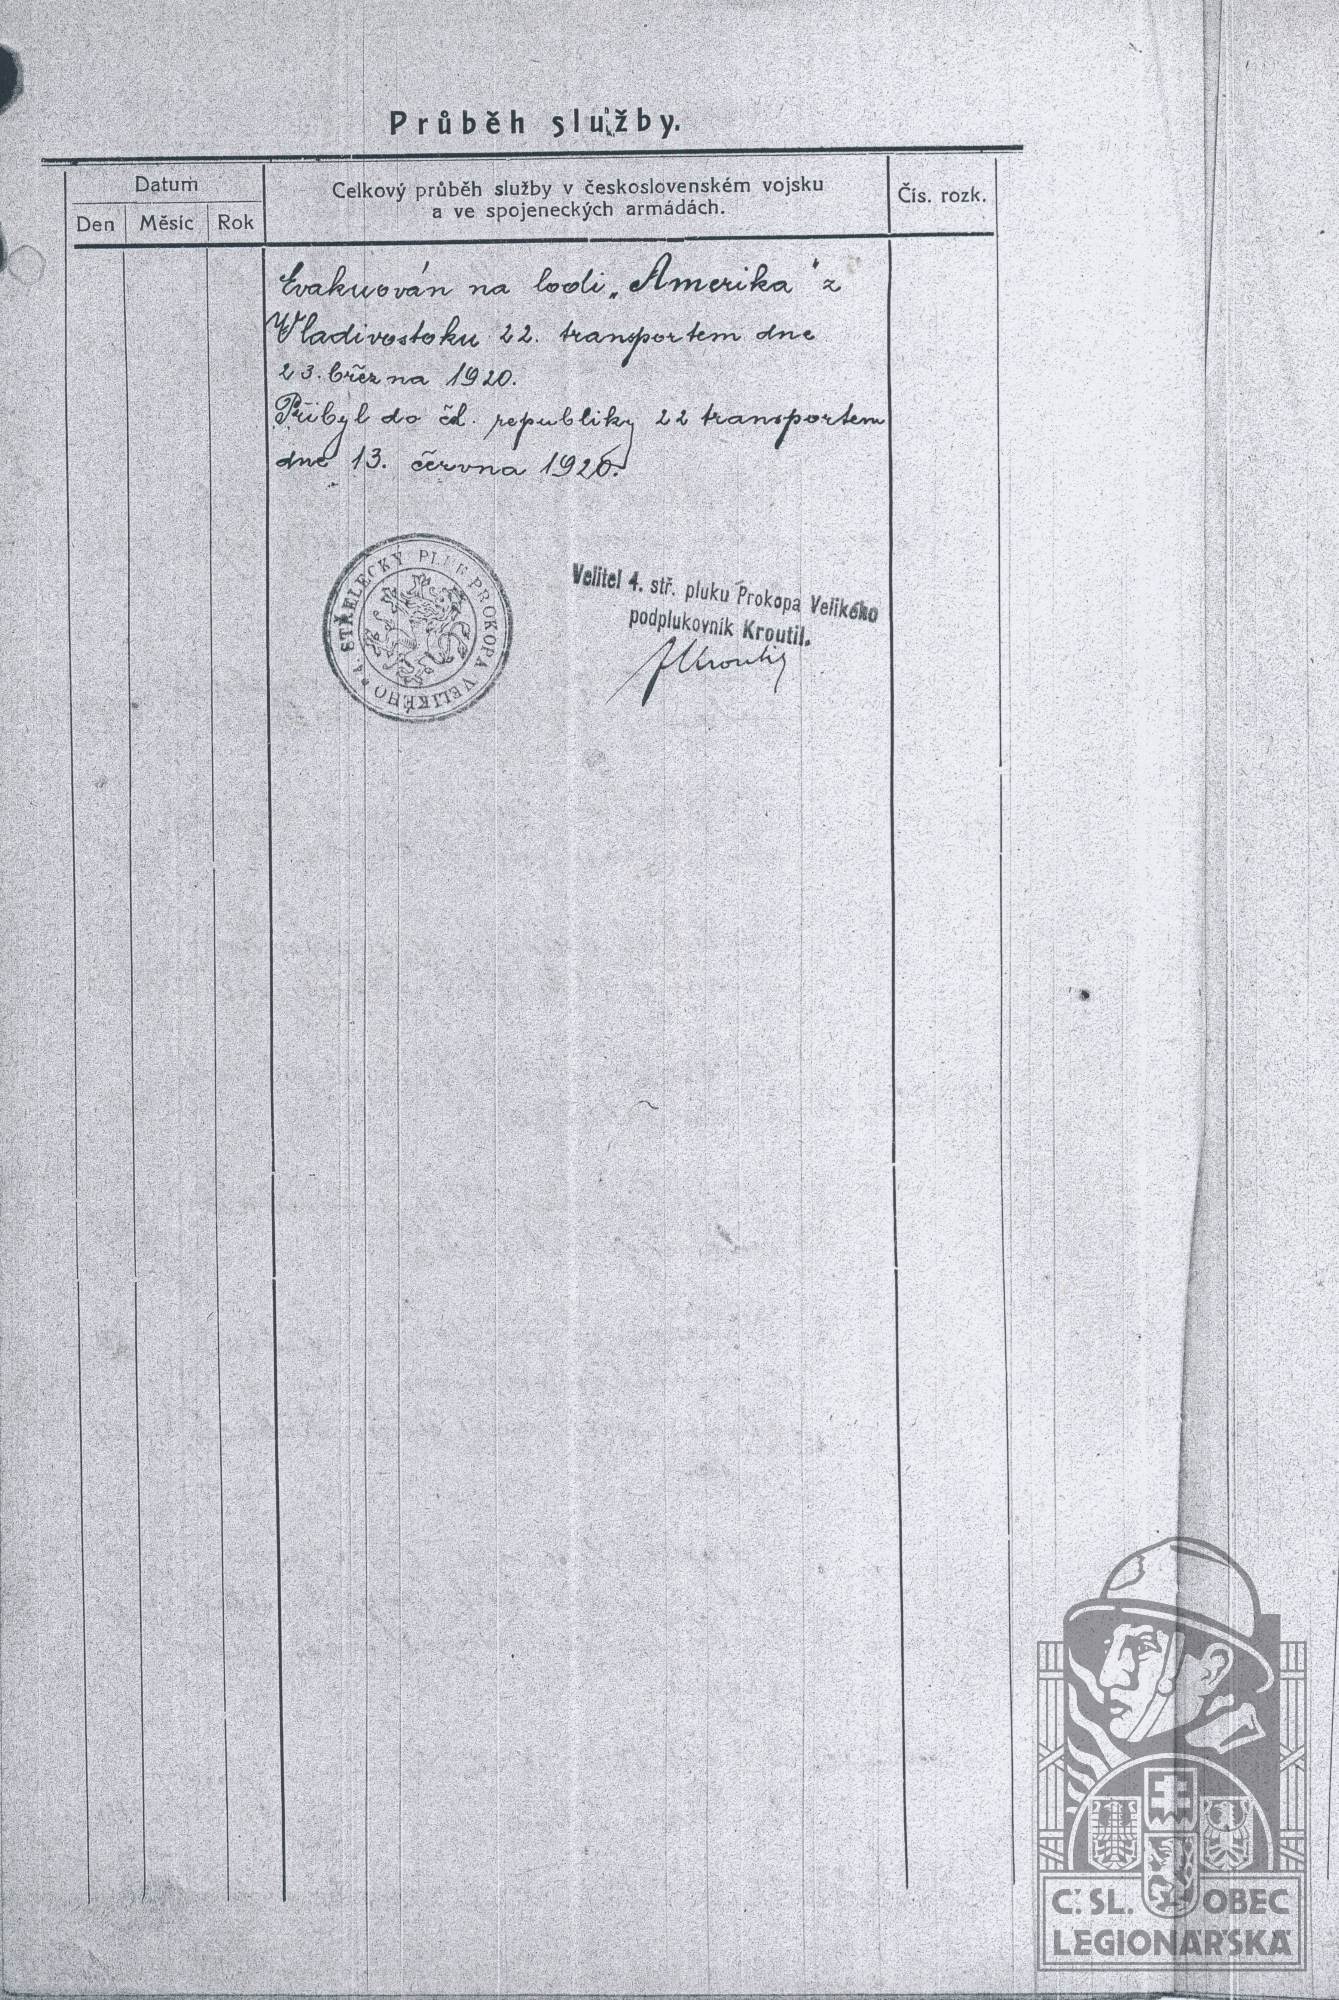 Průběh služby.
Datum
Den Měsíc Rok
Celkový průběh služby v československém vojsku
a ve spojeneckých armádách.
Čís. rozk.
Evakuován na lodi „Amerika“ z
Vladivostoku 22. transportem dne
23. března 1920.
Přibyl do čsl. republiky 22 transportem
dne 13. června 1920.
4. STŘELECKÝ PLUK PROKOPA VELIKÉHO
Velitel 4. stř. pluku Prokopa Velikého
podplukovník Kroutil.
JKroutil
Č. SL. OBEC
LEGIONÁŘSKÁ